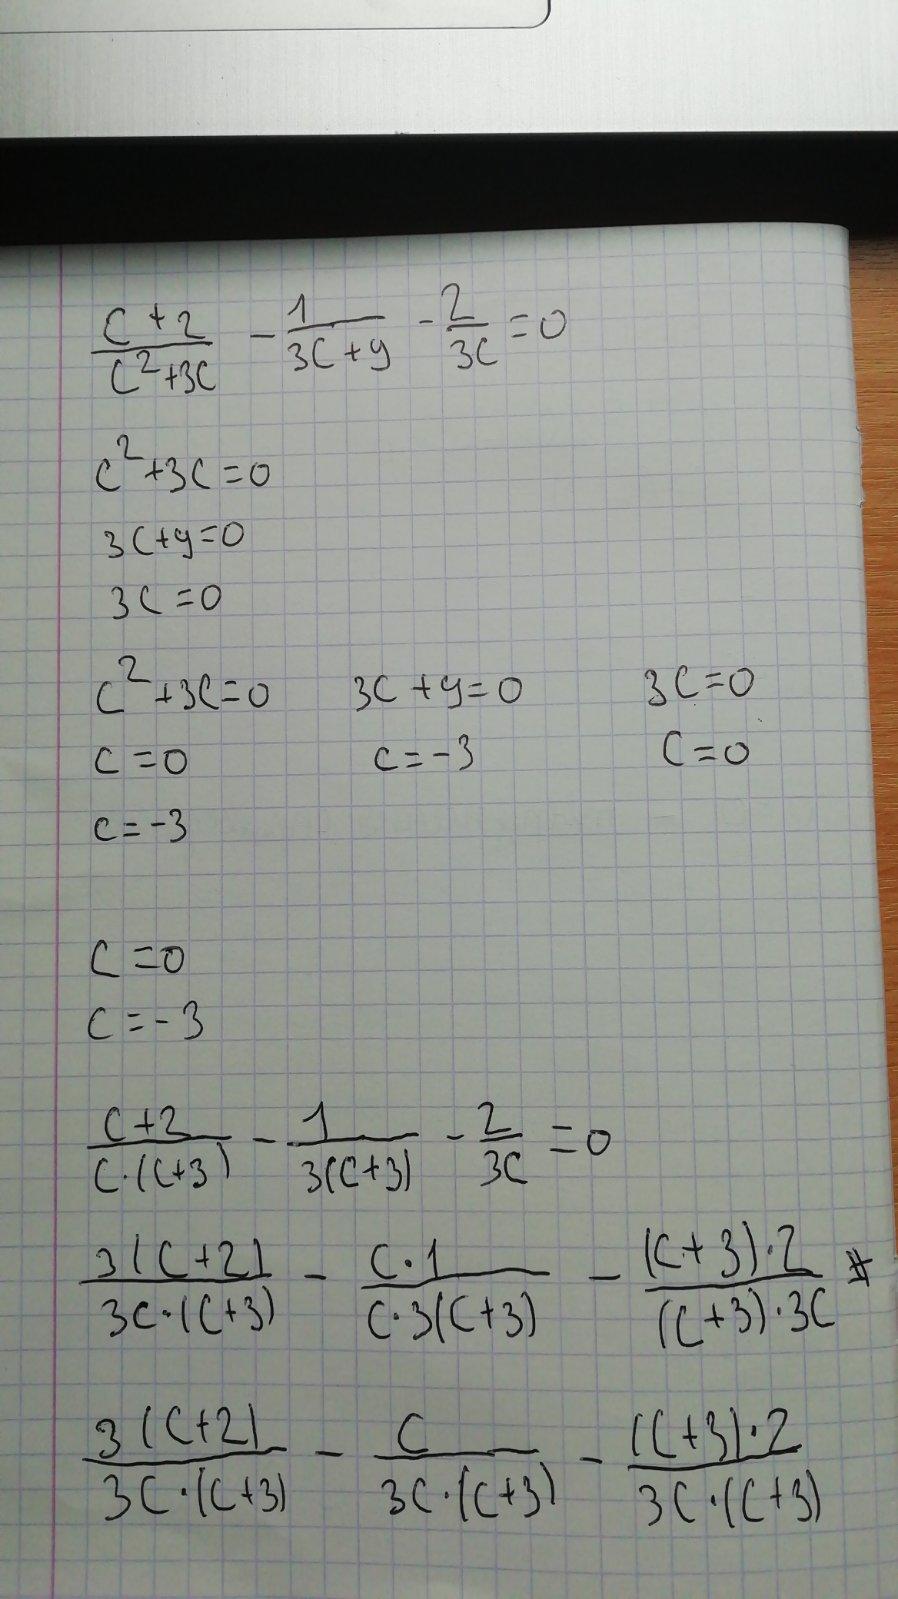 (c+2)/(c²+3c) - 1/(3c+9) - 2/(3c) = 0
c²+3c=0
3c+9=0
3c=0
c²+3c=0 3c+9=0 3c=0
c=0 c=-3 c=0
c=-3
c=0
c=-3
(c+2)/(c·(c+3)) - 1/(3(c+3)) - 2/(3c) = 0
3(c+2)/(3c·(c+3)) - (c·1)/(c·3(c+3)) - ((c+3)·2)/((c+3)·3c)
3(c+2)/(3c·(c+3)) - c/(3c·(c+3)) - ((c+3)·2)/(3c·(c+3))